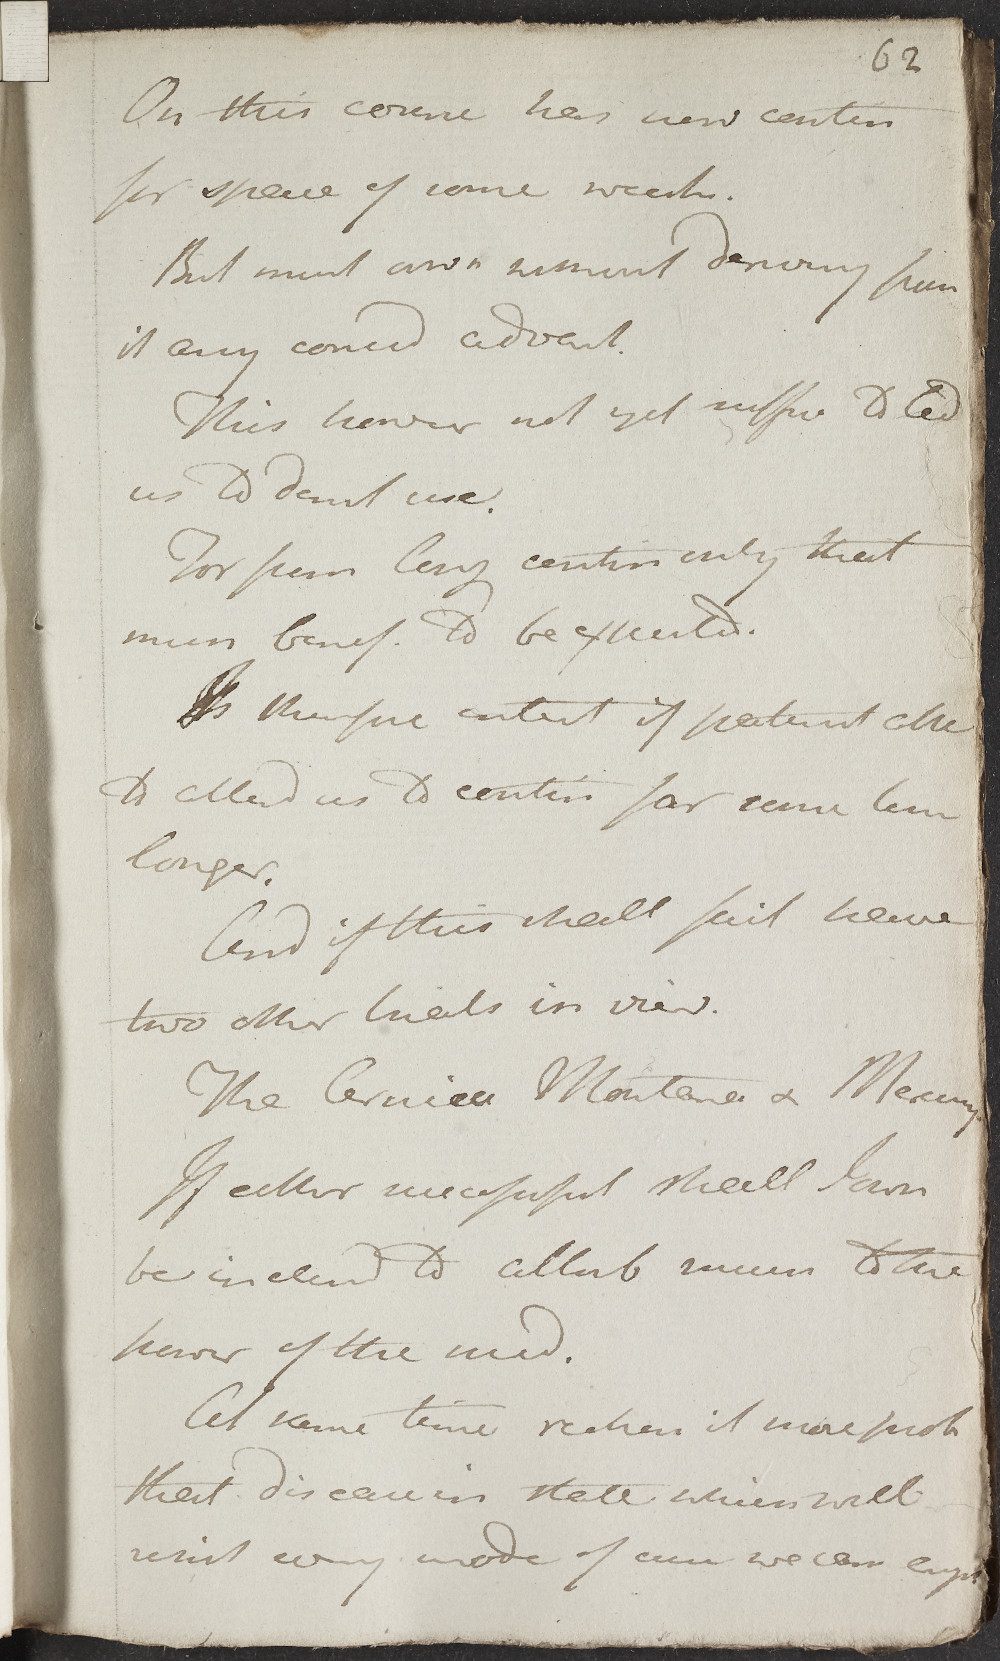 62
On this course has now contin
for space of some weeks.
But must own amount deriving from
it any consid advant.
This however not yet suffic to lead
us to desist use.
For from long contin only that
much benef. to be expected.
Is therefore intent if patient chse
to attend us to contin for some time
longer.
And if this shall fail have
two other trials in view.
The Arnica Montana & Mercury.
If either successful shall I own
be inclind to attrib much to the
power of the med.
At same time reckon it more prob
that disease in state which will
resist every mode of cure we can empl